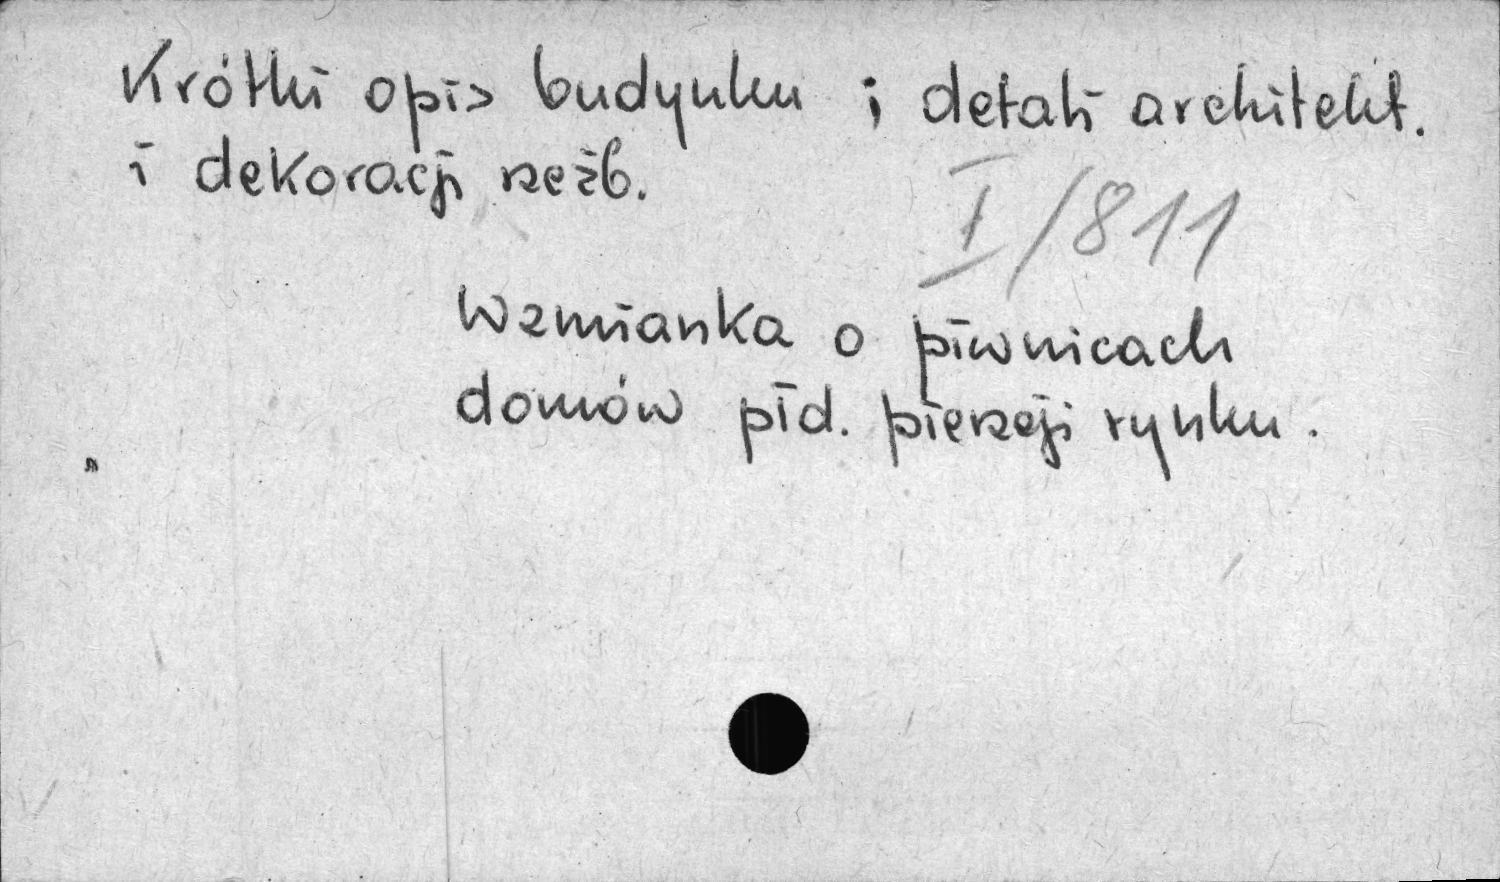 Krótki opis budynku i detali architekt.
i dekoracji rzeźb.
I/811
Wzmianka o piwnicach
domów płd. pierzeji rynku.